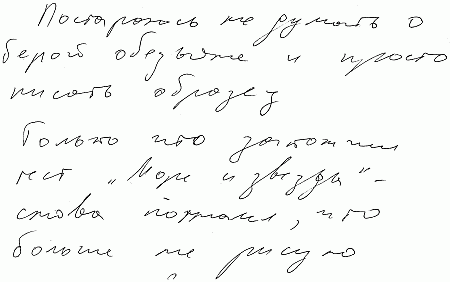 Постараюсь не думать о
белой обезьяне и просто
писать образец
Только что закончил
тест „Море и звезды"-
снова понял, что
больше не рисую